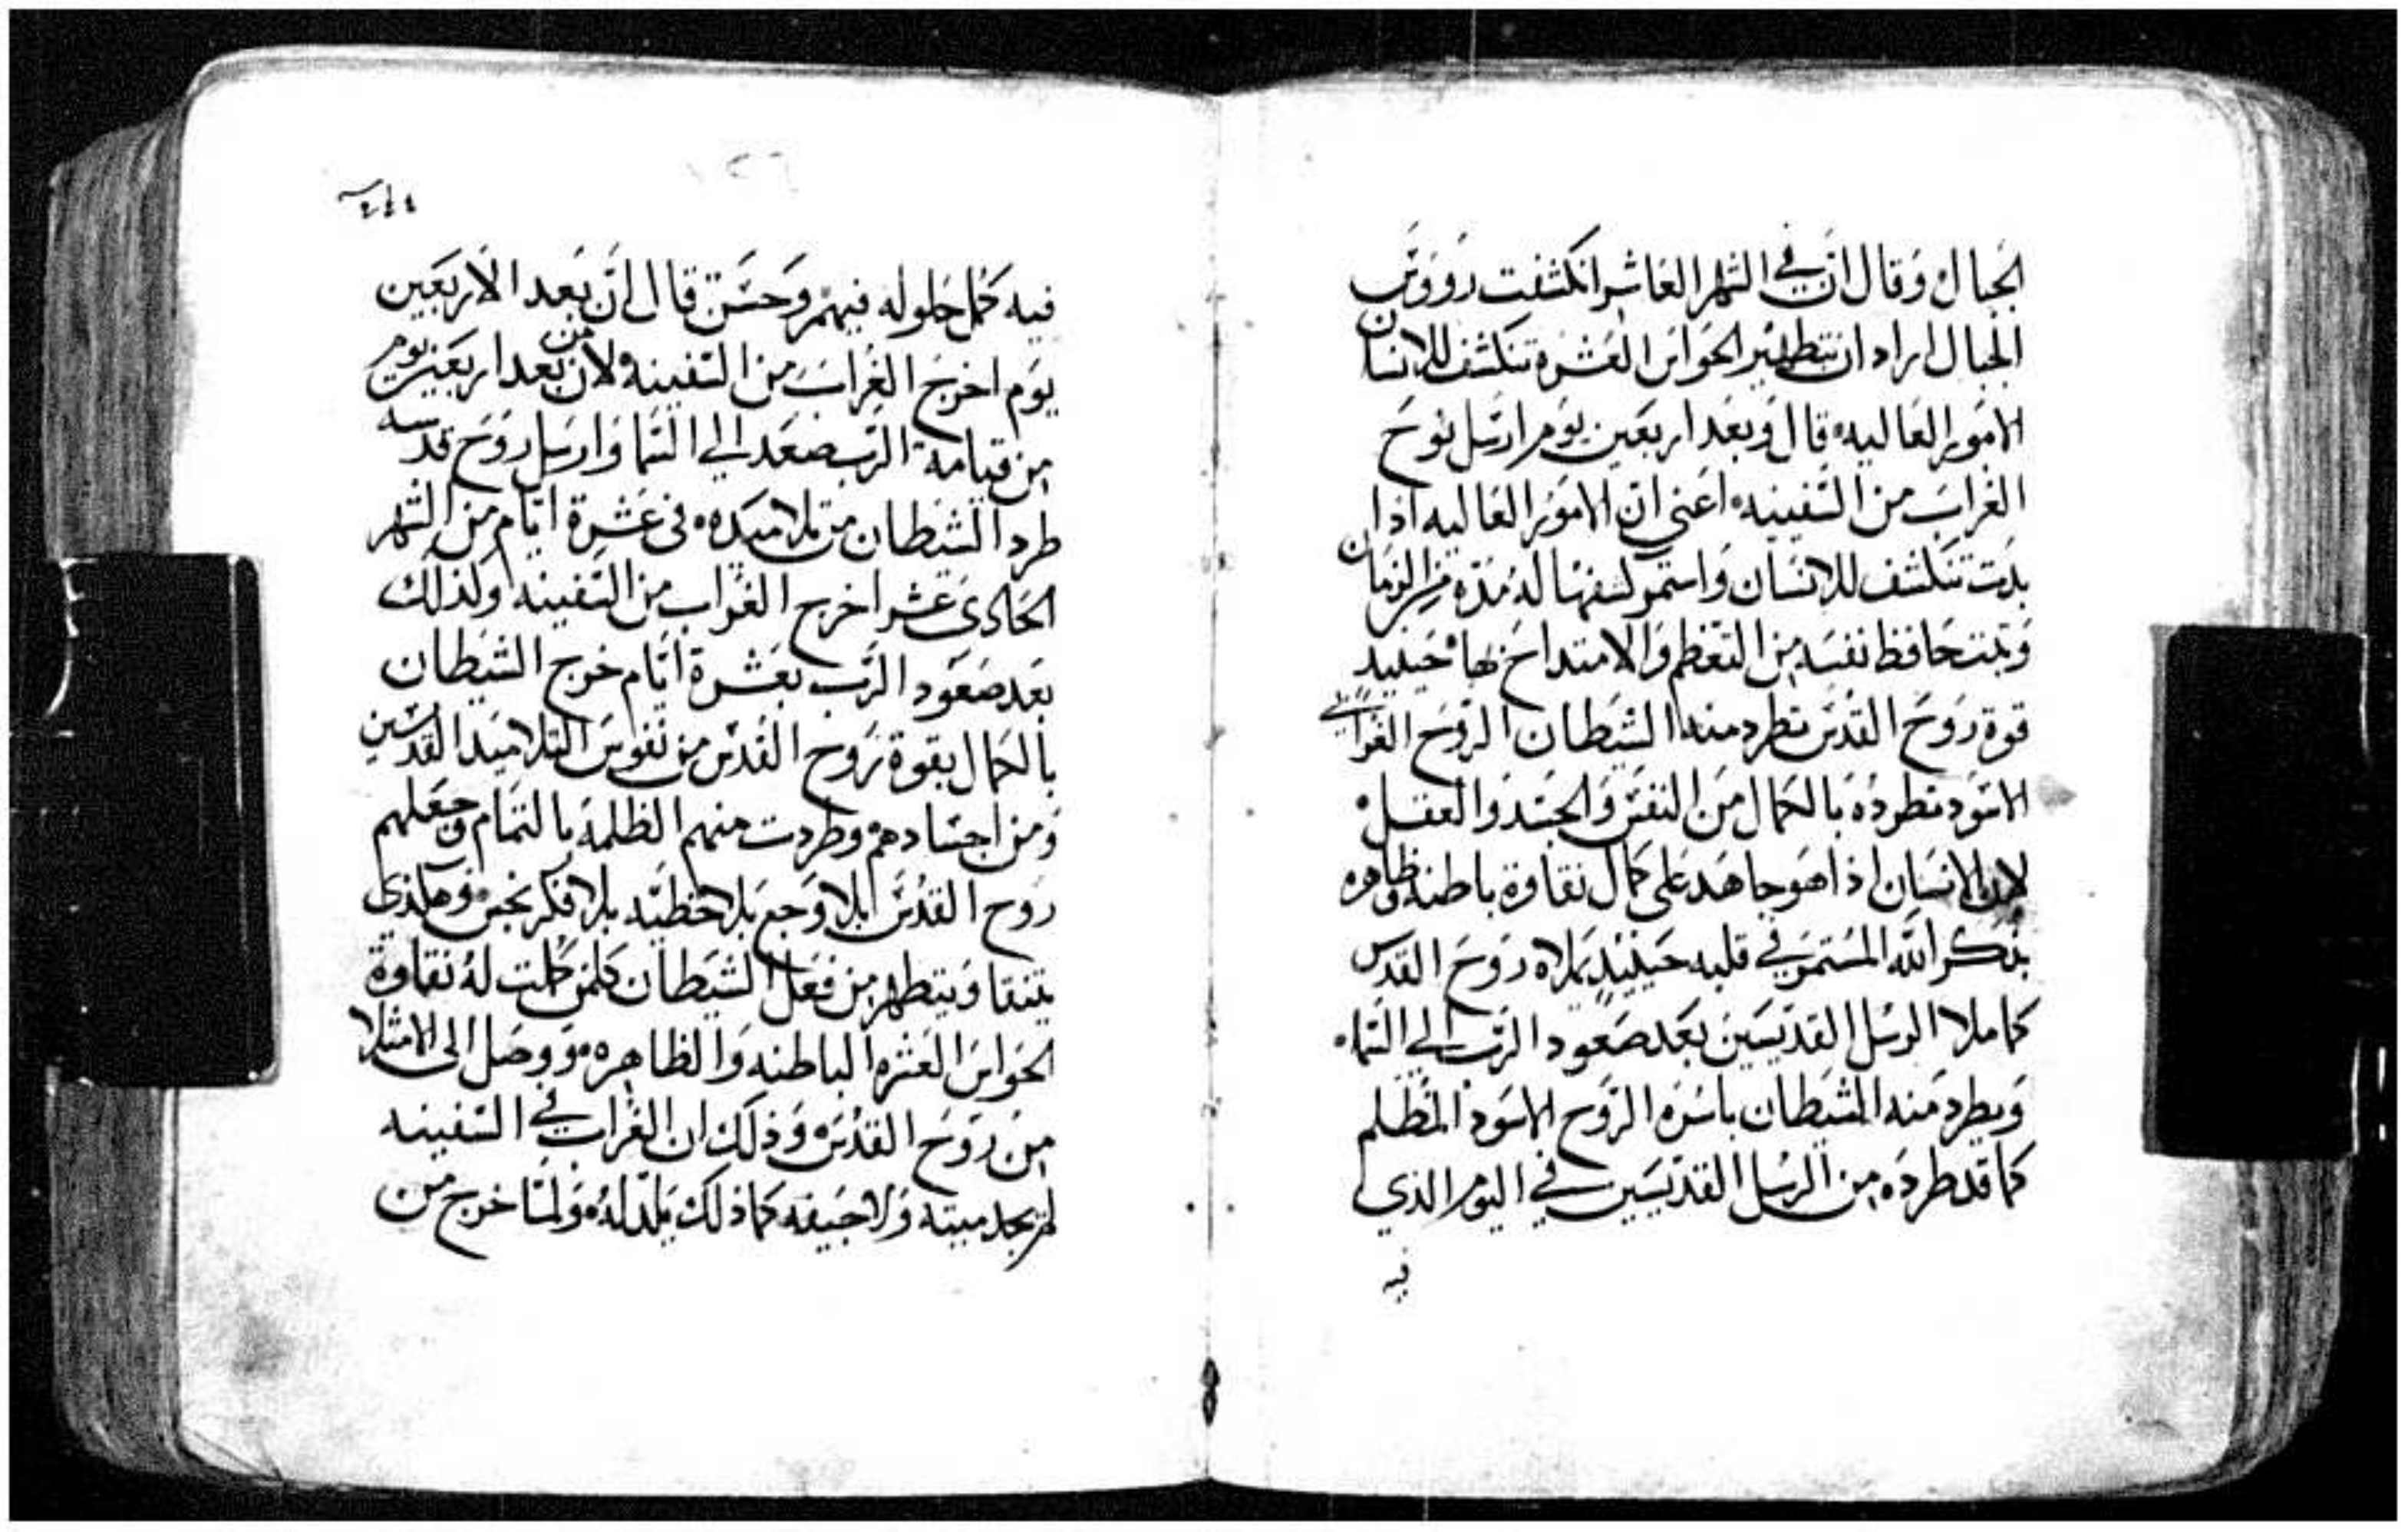 الجبال وقال ان في الشهر العاشر انكشفت رووس
الجبال اراد ان بتطهير الحواس العشرة تنكشف للانسان
الامور العاليه قال وبعد اربعين يوم ارسل نوح
الغراب من السفينه اعني ان الامور العاليه اذا
بدت تنكشف للانسان واستمر كشفها له مدة من الزمان
وثبت حافظ نفسه من التعظم والامتداح بها حينيد
قوة روح القدس تطرد منه الشيطان الروح الغرابي
الاسود تطرده بالكمال من النفس والجسد والعقل
لان الانسان اذا هو جاهد على كمال نقاوة باطنه وظاهره
بذكر الله المستمر في قلبه حينيد يملاه روح القدس
كما ملا الرسل القديسين بعد صعود الرب الي السماء
ويطرد منه الشيطان باسره الروح الاسود المظلم
كما قد طرده من الرسل القديسين في اليوم الذي
فيه
فيه كمل حلوله فيهم وحسن قال ان بعد الاربعين
يوم اخرج الغراب من السفينه لان من بعد اربعين يوم
من قيامة الرب صعد الي السما وارسل روح قدسه
طرد الشيطان من تلاميده في عشرة ايام من الشهر
الحادي عشر اخرج الغراب من السفينه ولذلك
بعد صعود الرب بعشرة ايام خرج الشيطان
بالكمال بقوة روح القدس من نفوس التلاميد القديسين
ومن اجسادهم وطردت منهم الظلمة بالتمام وجعلهم
روح القدس بلا وجع بلا خطيه بلا فكر نجس وهكذي
يتنقا ويتطهر من فعل الشيطان كلمن كملت له نقاوة
الحواس العشره الباطنه والظاهره ووصل الى الامتلا
من روح القدس وذلك ان الغراب في السفينه
لم يجد ميته ولا جيفه كما ذلك يلد له ولما خرج من